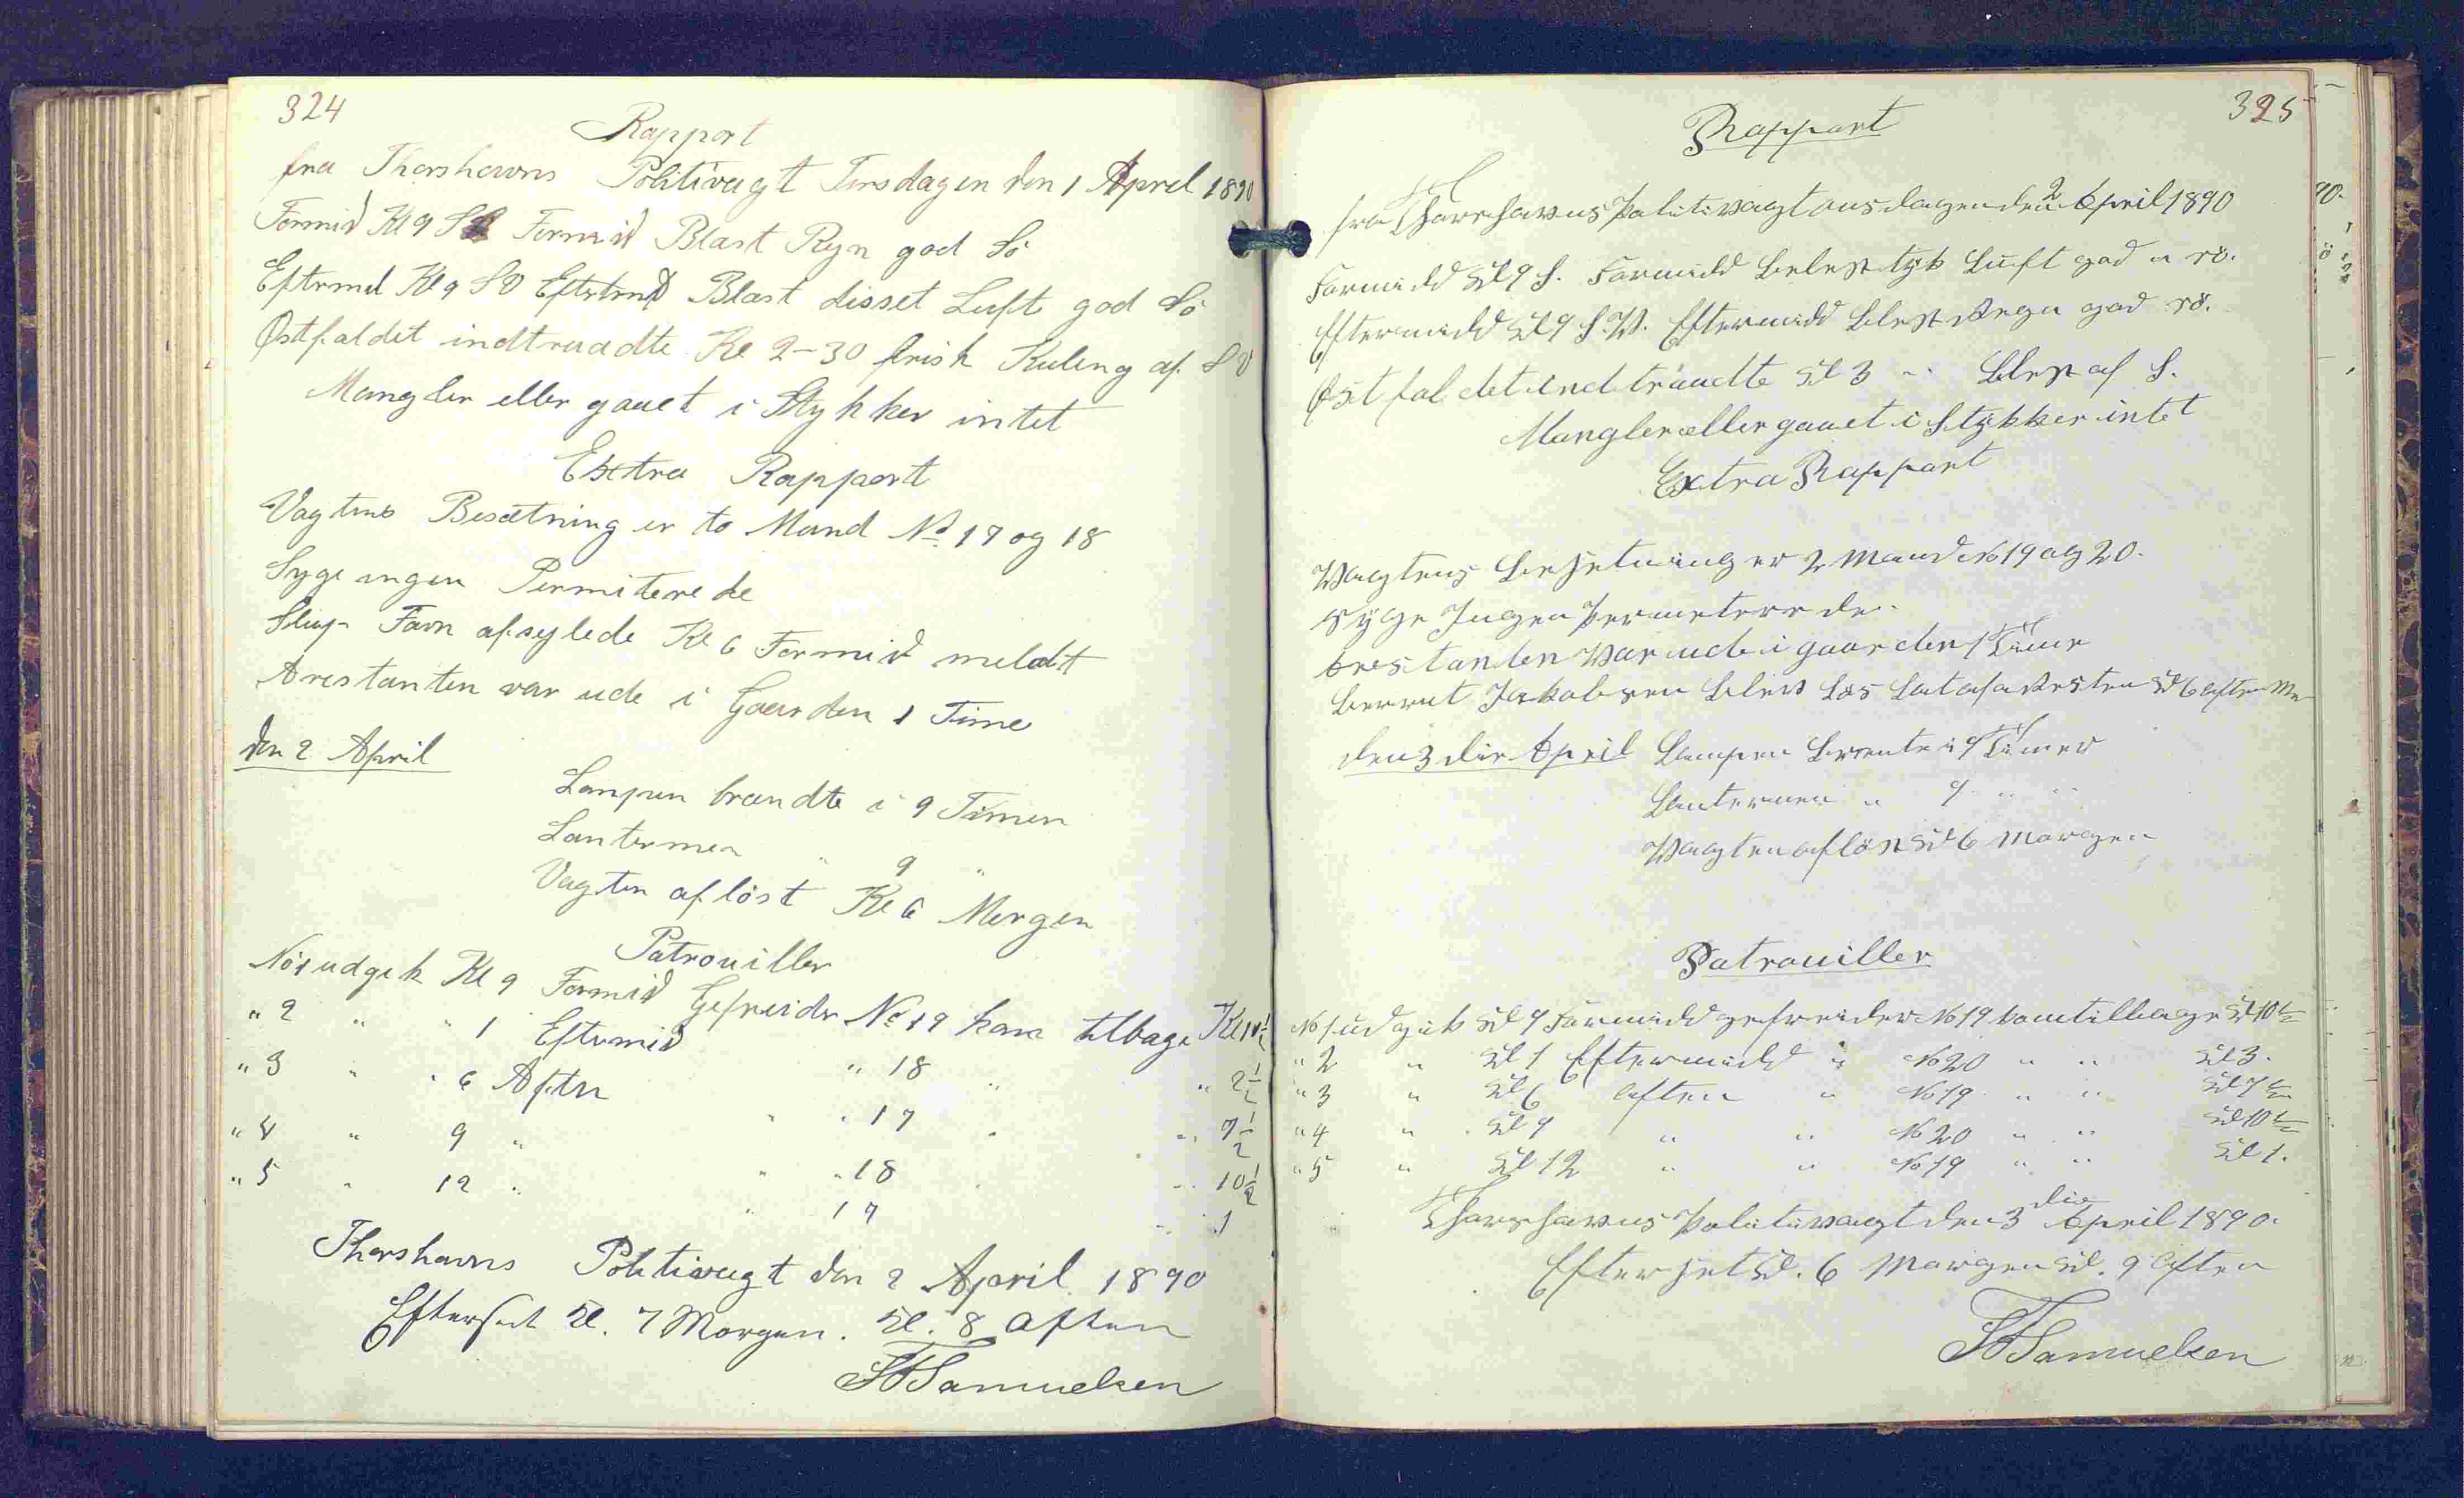 324
Rapport
fra Thorshavns Politivagt Tirsdagen den 1 April 1890
Formid Kl 9 Formid Blæst Ryn god Sö
Eftrmd Kl 9 SV Eftrmd Blæst disset Luft god Sö
Östfaldet indtraadte Kl 2-30 frisk Kuling af SV
Mangler eller gaaet i Stykker intet
Extra Rapport
Vagtens Besætning er to Mand No 17 og 18
Syge ingen Permiterede
Slup Favn afseylede Kl 6 Formid meldt
Arestanten var ude i Gaarden 1 Time
den 2 April
Lampen brændte i 9 Timer
Lanternen " 9 "
Vagten aflöst Kl 6 Morgen
Patrouiller
No 1 udgik Kl 9 Formid Gefreider No 17 kom tilbage Kl 10½
" 2 " " 1 Eftermid " 18 " " 2½
" 3 " " 6 Aften " " 17 " " 7½
" 4 " 9 " " " 18 " " 10½
" 5 " 12 " " 17 " " 1
Thorshavns Politivagt den 2 April 1890
Efterset Kl. 7 Morgen. Kl. 8 Aften
Samuelsen
325
Rappart
fra Thorshavns Politivagt onsdagen den 2 April 1890
Formidd Kl 9 S. Formidd Belest tyk Luft god rö.
Eftermidd Kl 9 S.W. Eftermidd Blest Regn god rö.
Östfaldet indtraadte Kl 3 " Blest af S.
Mangler eller gaaet i Stykker intet
Extra Rappart
Wagtens Besetning er 2 Mand No 19 og 20.
Syge Ingen Permeterede.
Arestanten war ude i gaarden 1 Time
Berent Jakobsen blew Los Lat af aresten Kl 6 aften
den 3die April Lampen brente i 9 Timer
Lanternen " 9 " "
Wagten aflöst Kl 6 Morgen
Patrouiller
No 1 udgik Kl 9 Formidd gefreider No 19 kom tilbage Kl 10½
" 2 " Kl 1 Eftermidd " No 20 " " Kl 3.
" 3 " Kl 6 aften " No 19 " " Kl 7½
" 4 " Kl 9 " " No 20 " " Kl 10½
" 5 " Kl 12 " " No 19 " " Kl 1.
Thorshavns Politiwagt den 3die April 1890.
Efterset Kl. 6 Morgen Kl. 9 Aften
Samuelsen